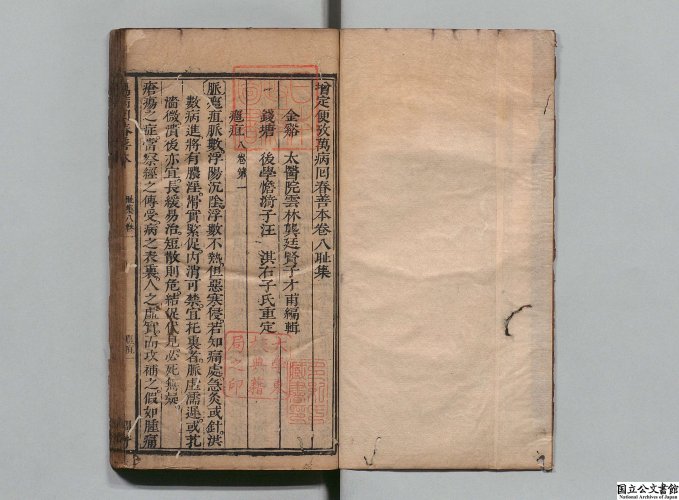 增定便攷萬病回春善本卷八耻集
金谿　太醫院雲林龔廷賢子才甫編輯
錢塘　後學憺漪子汪　淇右子氏重定
癰疽 八卷第一
脈癰疽脈數浮陽沉陰浮數不熱但惡寒侵若知痛處急灸或針洪
數病進將有膿淫滑實緊促內消可禁宜托裏者脈虛濡遲或芤
濇微潰後亦宜長緩易治短散則危結促代見必死無疑
瘡瘍之症當察經之傳受病之表裏人之虛實而攻補之假如腫痛
耻集八卷
國立公文書館
National Archives of Japan